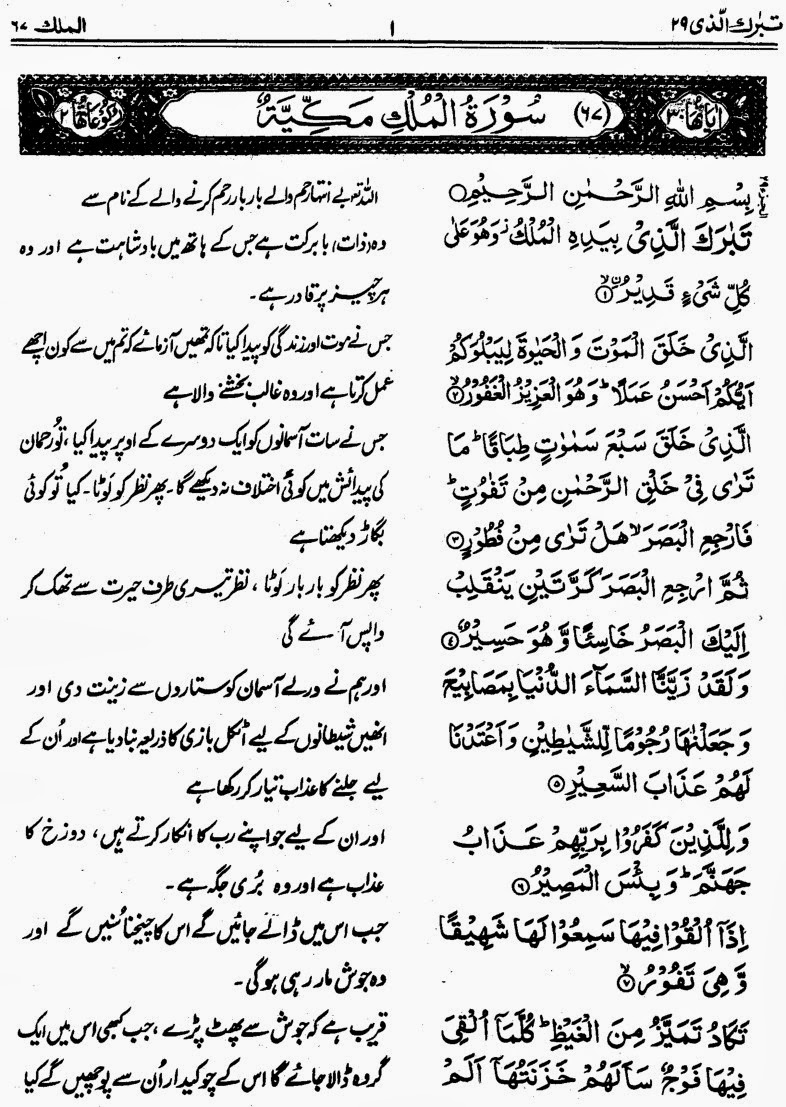 تبٰرك الّذى ٢٩
١
الملك ٦٧
اٰيَاتُهَا ٣٠
(٦٧) سُوْرَةُ الْمُلْكِ مَكِّيَّةٌ
رُكُوْعَاتُهَا ٢
بِسْمِ اللهِ الرَّحْمٰنِ الرَّحِيْمِ
تَبٰرَكَ الَّذِىْ بِيَدِهِ الْمُلْكُ وَهُوَ عَلٰى
كُلِّ شَىْءٍ قَدِيْرُ ۙ﴿١﴾
الَّذِىْ خَلَقَ الْمَوْتَ وَ الْحَيٰوةَ لِيَبْلُوَكُمْ
اَيُّكُمْ اَحْسَنُ عَمَلًا ؕ وَ هُوَ الْعَزِيْزُ الْغَفُوْرُ ۙ﴿٢﴾
الَّذِىْ خَلَقَ سَبْعَ سَمٰوٰتٍ طِبَاقًا ؕ مَا
تَرٰى فِىْ خَلْقِ الرَّحْمٰنِ مِنْ تَفٰوُتٍ ؕ
فَارْجِعِ الْبَصَرَ ۙ هَلْ تَرٰى مِنْ فُطُوْرٍ ﴿٣﴾
ثُمَّ ارْجِعِ الْبَصَرَ كَرَّتَيْنِ يَنْقَلِبْ
اِلَيْكَ الْبَصَرُ خَاسِئًا وَّ هُوَ حَسِيْرٌ ﴿٤﴾
وَ لَقَدْ زَيَّنَّا السَّمَآءَ الدُّنْيَا بِمَصَابِيْحَ
وَ جَعَلْنٰهَا رُجُوْمًا لِّلشَّيٰطِيْنِ وَ اَعْتَدْنَا
لَهُمْ عَذَابَ السَّعِيْرِ ﴿٥﴾
وَ لِلَّذِيْنَ كَفَرُوْا بِرَبِّهِمْ عَذَابُ
جَهَنَّمَ ؕ وَ بِئْسَ الْمَصِيْرُ ﴿٦﴾
اِذَآ اُلْقُوْا فِيْهَا سَمِعُوْا لَهَا شَهِيْقًا
وَّ هِىَ تَفُوْرُ ۙ﴿٧﴾
تَكَادُ تَمَيَّزُ مِنَ الْغَيْظِ ؕ كُلَّمَآ اُلْقِىَ
فِيْهَا فَوْجٌ سَاَلَهُمْ خَزَنَتُهَآ اَلَمْ
اللہ تعالیٰ بے انتہا رحم والے بار بار رحم کرنے والے کے نام سے
وہ (ذات) بابرکت ہے جس کے ہاتھ میں بادشاہت ہے اور وہ
ہر چیز پر قادر ہے۔
جس نے موت اور زندگی کو پیدا کیا تاکہ تمھیں آزمائے کہ تم میں سے کون اچھے
عمل کرتا ہے اور وہ غالب بخشنے والا ہے
جس نے سات آسمانوں کو ایک دوسرے کے اوپر پیدا کیا، تُو رحمان
کی پیدائش میں کوئی اختلاف نہ دیکھے گا۔ پھر نظر کو لَوٹا۔ کیا تُو کوئی
بگاڑ دیکھتا ہے
پھر نظر کو بار بار لَوٹا، نظر تیری طرف حیرت سے تھک کر
واپس آئے گی
اور ہم نے ورلے آسمان کو ستاروں سے زینت دی اور
انھیں شیطانوں کے لیے اٹکل بازی کا ذریعہ بنا دیا ہے اور اُن کے
لیے جلنے کا عذاب تیار کر رکھا ہے
اور ان کے لیے جو اپنے رب کا انکار کرتے ہیں، دوزخ کا
عذاب ہے اور وہ بُری جگہ ہے۔
جب اس میں ڈالے جائیں گے اس کا چیخنا سُنیں گے اور
وہ جوش مار رہی ہوگی۔
قریب ہے کہ جوش سے پھٹ پڑے، جب کبھی اس میں ایک
گروہ ڈالا جائے گا اس کے چوکیدار اُن سے پوچھیں گے کیا